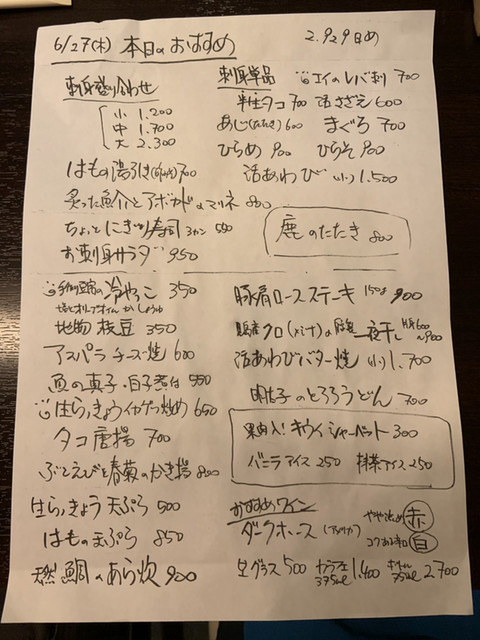 6/27(木) 本日のおすすめ
2.929日め
刺身盛り合わせ
小 1.200
中 1.700
大 2.300
はもの湯引き 700
炙った魚介とアボカドのマリネ 800
ちょっとにぎり寿司 3カン 550
お刺身サラダ 950
刺身単品
エイのレバ刺 700
半生タコ 700 活さざえ 600
あじ(たたき) 600 まぐろ 700
ひらめ 900 ひらそ 900
活あわび (小) 1.500
鹿のたたき 800
手作り豆腐の冷やっこ 350
塩とオリーブオイル か しょうゆ
地物 枝豆 350
アスパラ チーズ焼 600
魚の真子・白子煮付 550
生らっきょうイカゲソ炒め 650
タコ唐揚 700
ぶとえびと春菊のかき揚 800
生らっきょう天ぷら 500
はもの天ぷら 850
天然鯛のあら炊 900
豚肩ロースステーキ 150g 900
クロ(メジナ)の 一夜干し 600〜900
活あわびバター焼 (小) 1.700
明太子のとろろうどん 700
果肉入!キウイシャーベット 300
バニラアイス 250 抹茶アイス 250
おすすめワイン
ダークホース (アメリカ)
やや渋め 赤
コクある辛口 白
グラス 500 デカンタ 375ml 1.400 ボトル 750ml 2.700